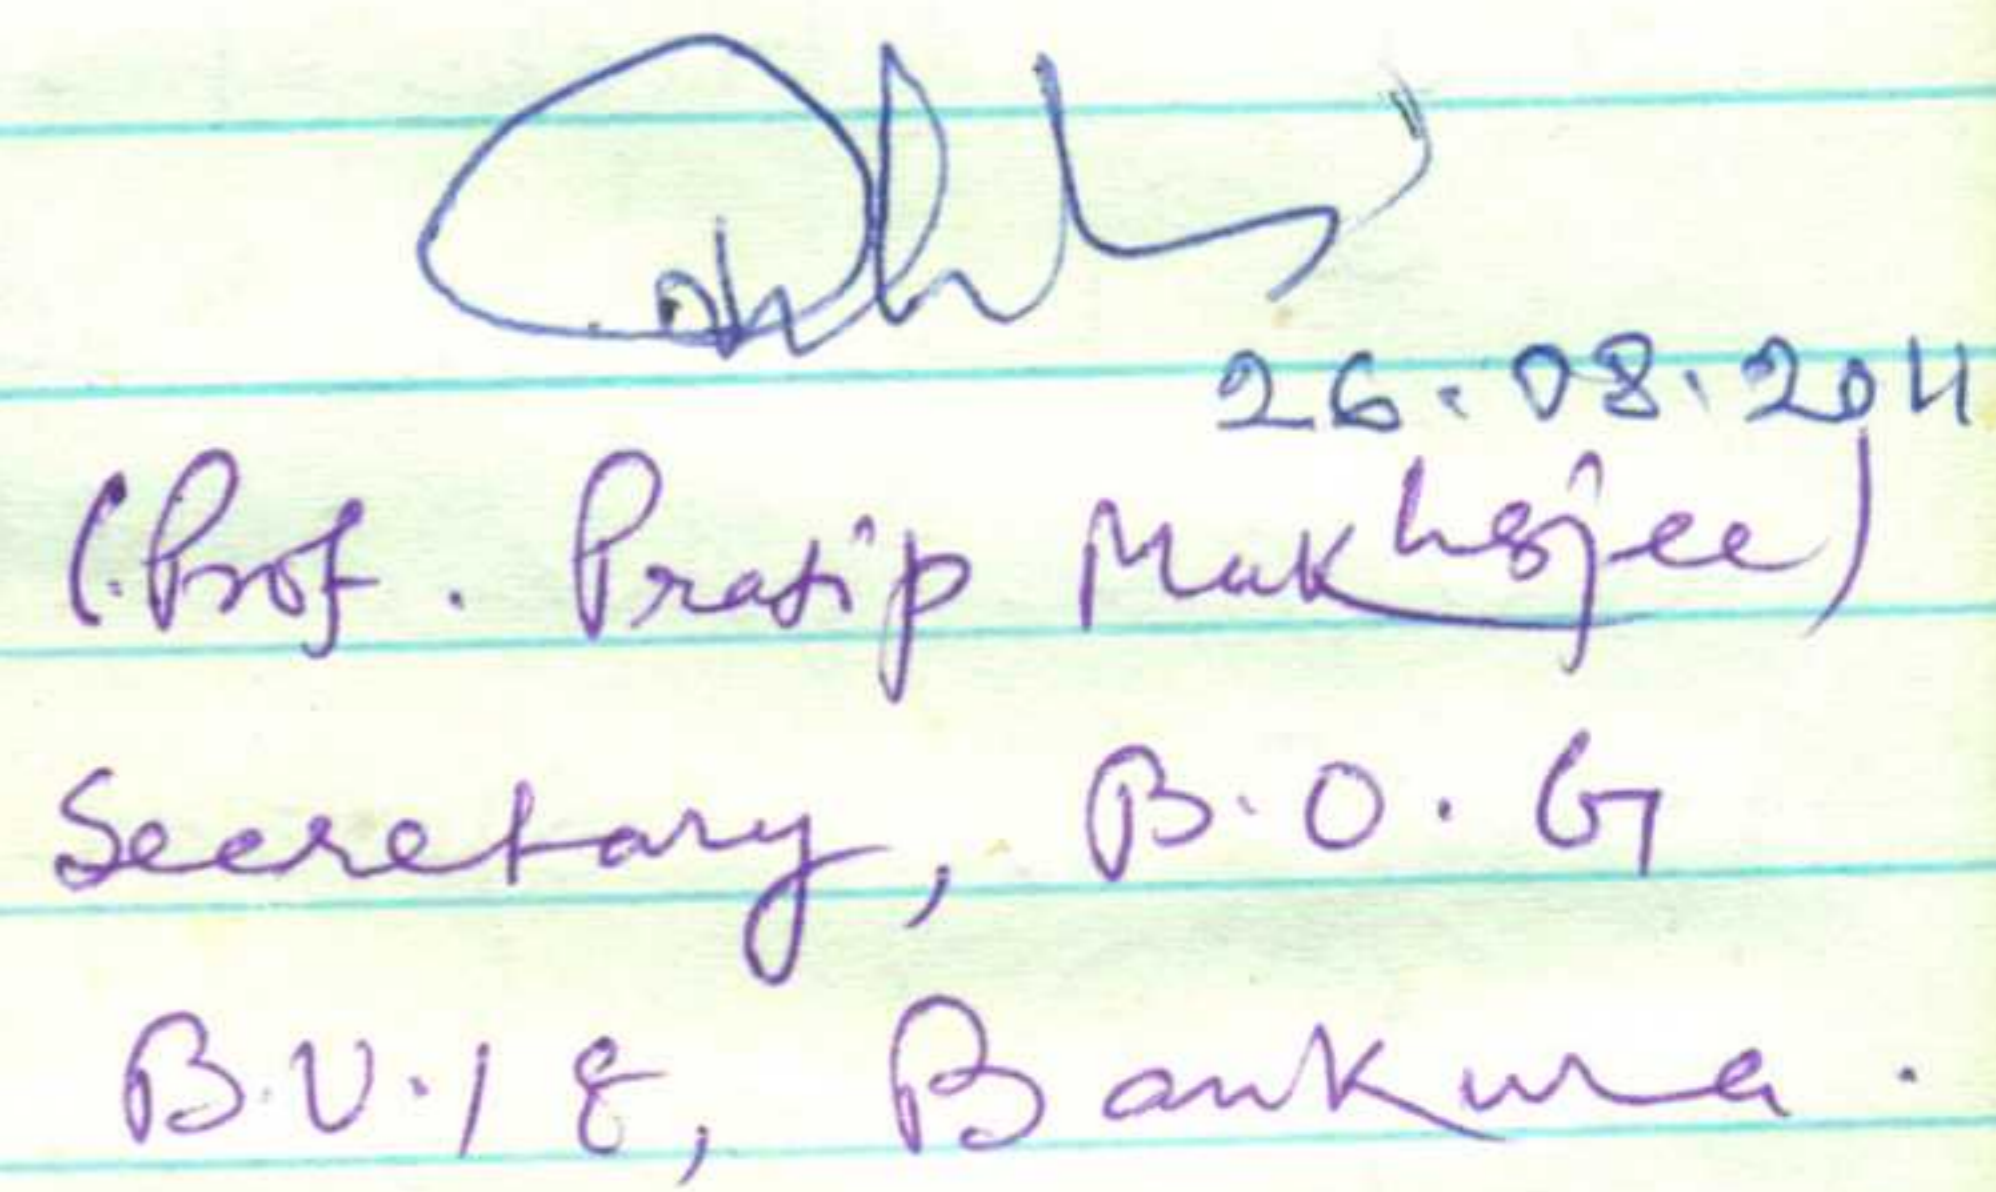 26.08.2011
(Prof. Pratip Mukherjee)
Secretary, B.O.G
B.U.IE, Bankura.